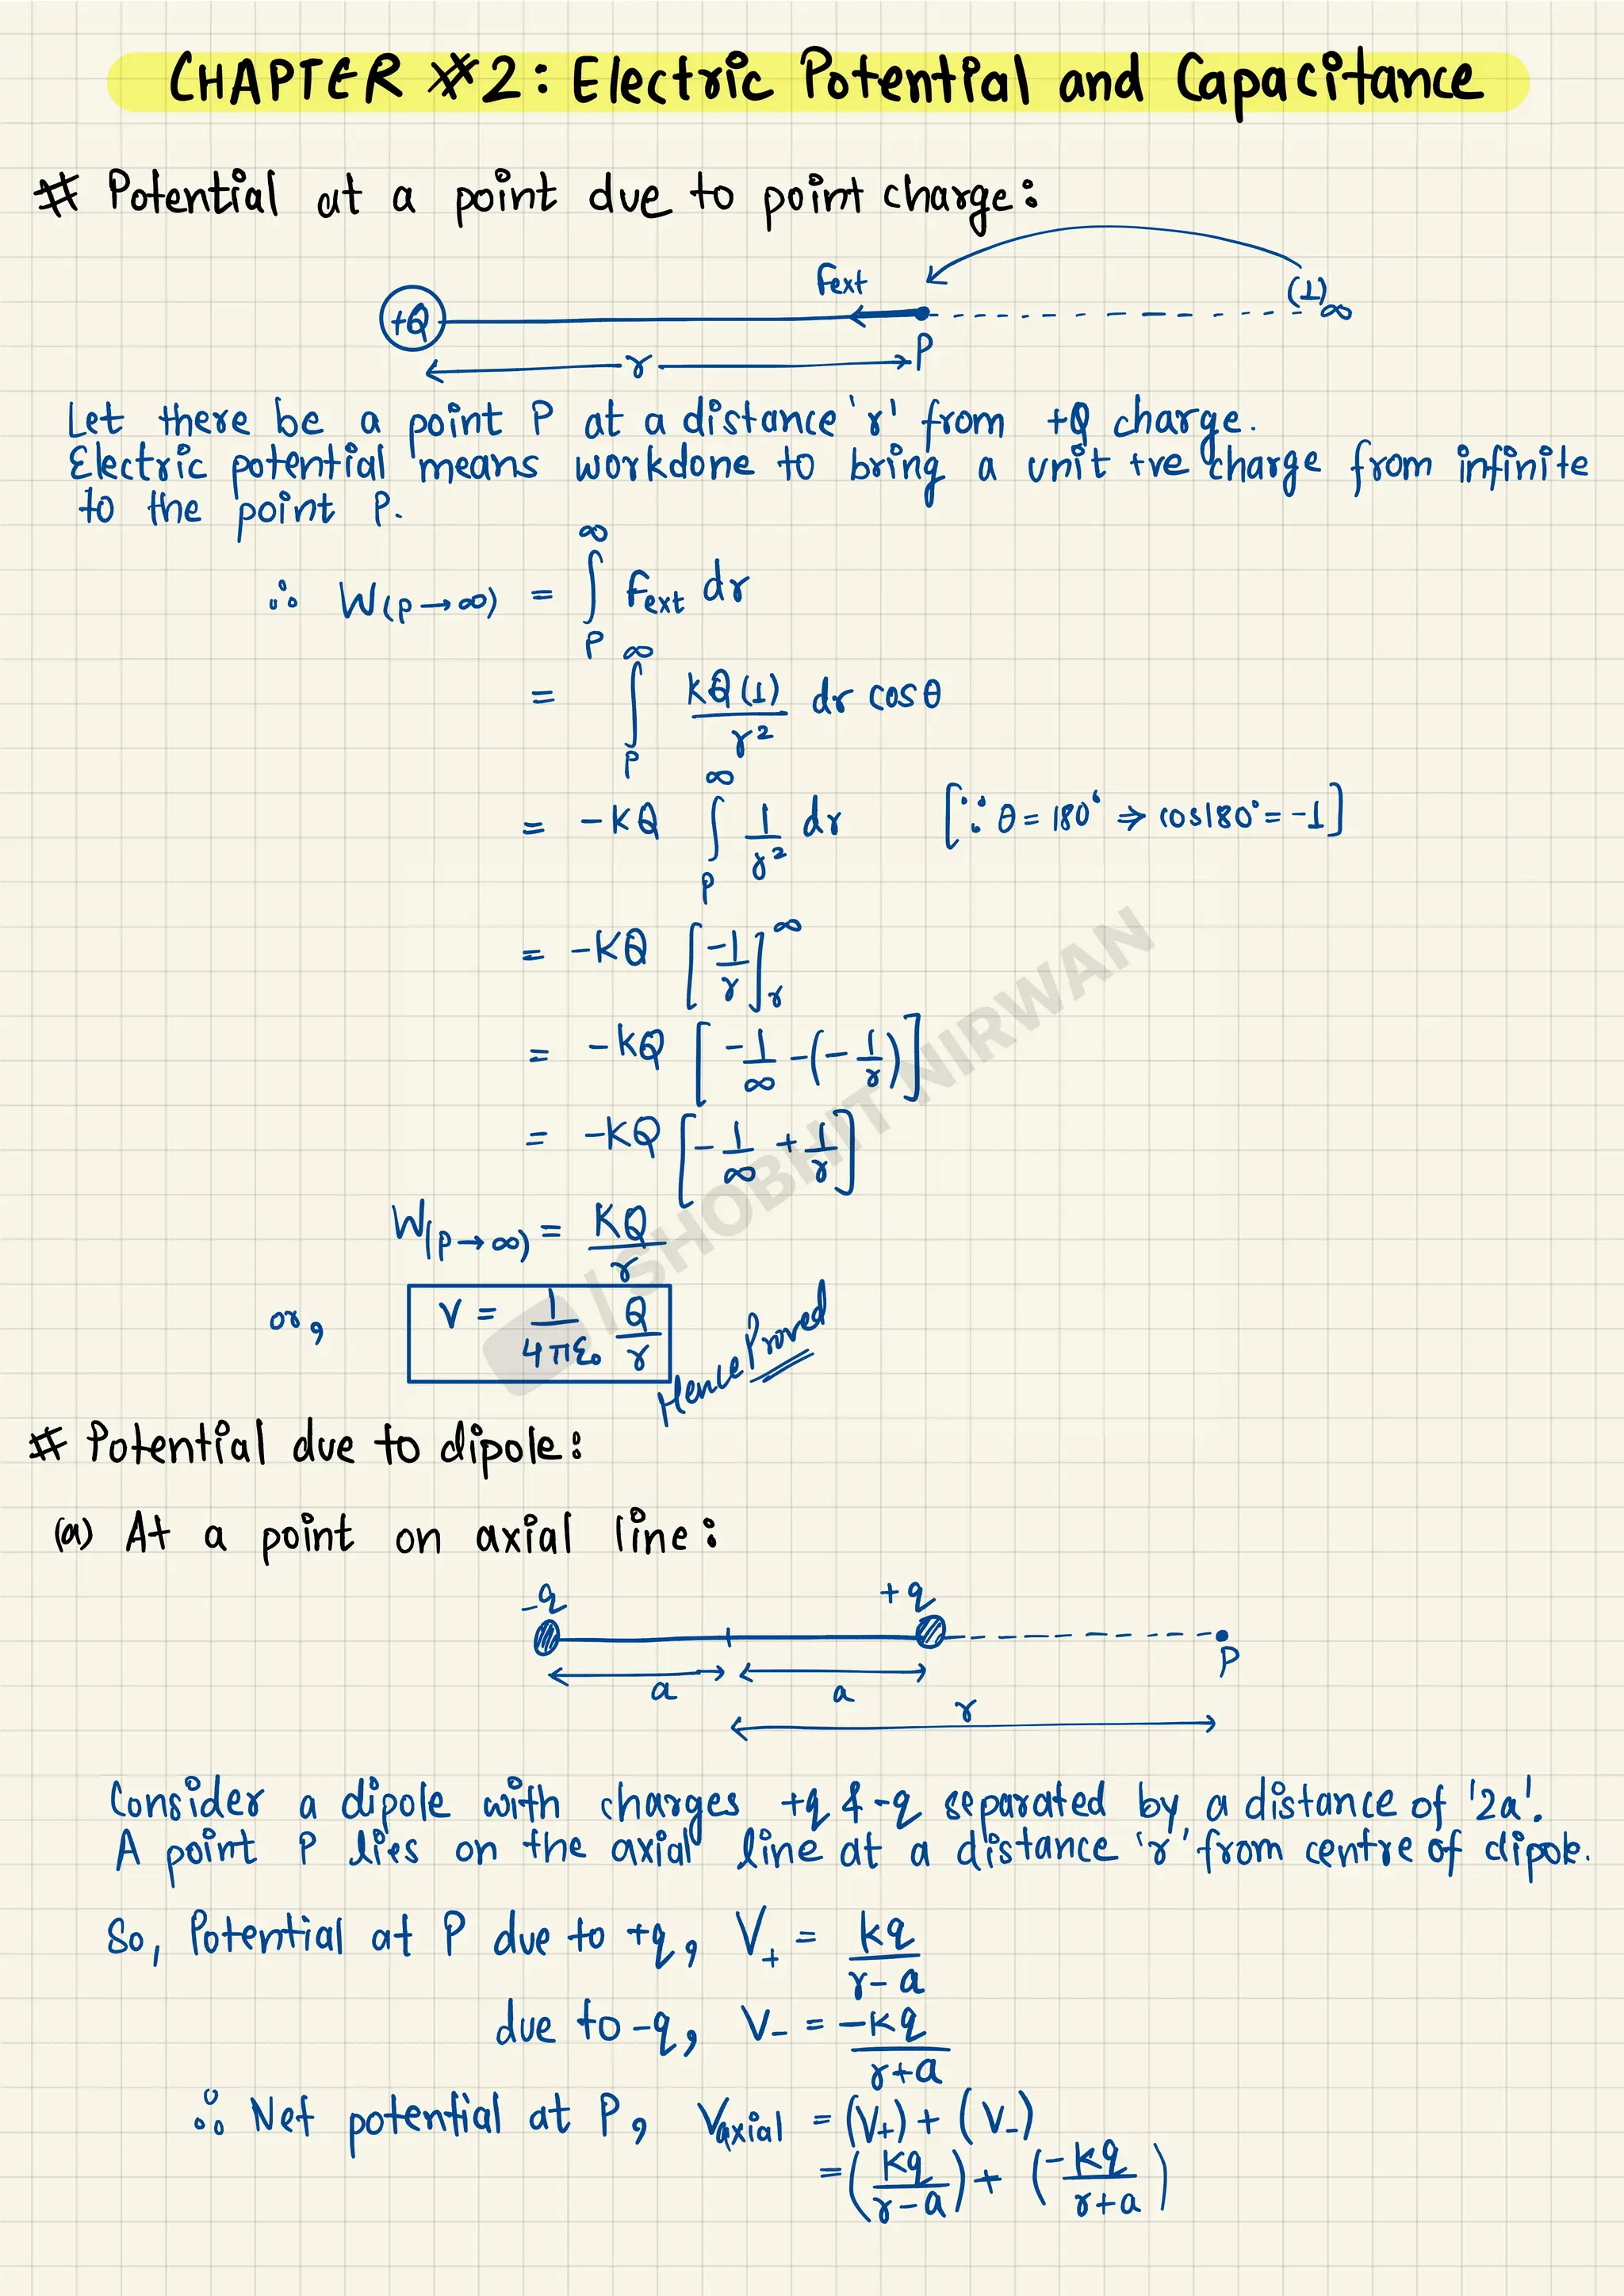 CHAPTER #2: Electric Potential and Capacitance
# Potential at a point due to point charge:
Fext
(1)∞
+Q
P
r
Let there be a point P at a distance 'r' from +Q charge.
Electric potential means workdone to bring a unit +ve charge from infinite
to the point P.
∴ W(P→∞) = ∫_P^∞ Fext dr
= ∫_P^∞ KQ(1)/r² dr cosθ
= -KQ ∫_P^∞ 1/r² dr [∵ θ = 180° ⇒ cos180° = -1]
= -KQ [-1/r]_r^∞
= -KQ [-1/∞ -(-1/r)]
= -KQ [-1/∞ + 1/r]
W(P→∞) = KQ/r
or, V = 1/4πε₀ Q/r
Hence Proved
/ SHOBHIT NIRWAN
# Potential due to dipole:
(a) At a point on axial line:
-q +q
P
a a
r
Consider a dipole with charges +q & -q separated by a distance of '2a'.
A point P lies on the axial line at a distance 'r' from centre of dipole.
So, Potential at P due to +q, V₊ = kq/r-a
due to -q, V₋ = -kq/r+a
∴ Net potential at P, Vaxial = (V₊) + (V₋)
= (kq/r-a) + (-kq/r+a)